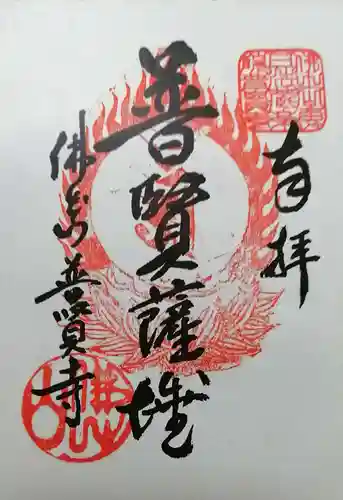 奉拝
普賢薩埵
佛母山
普賢寺